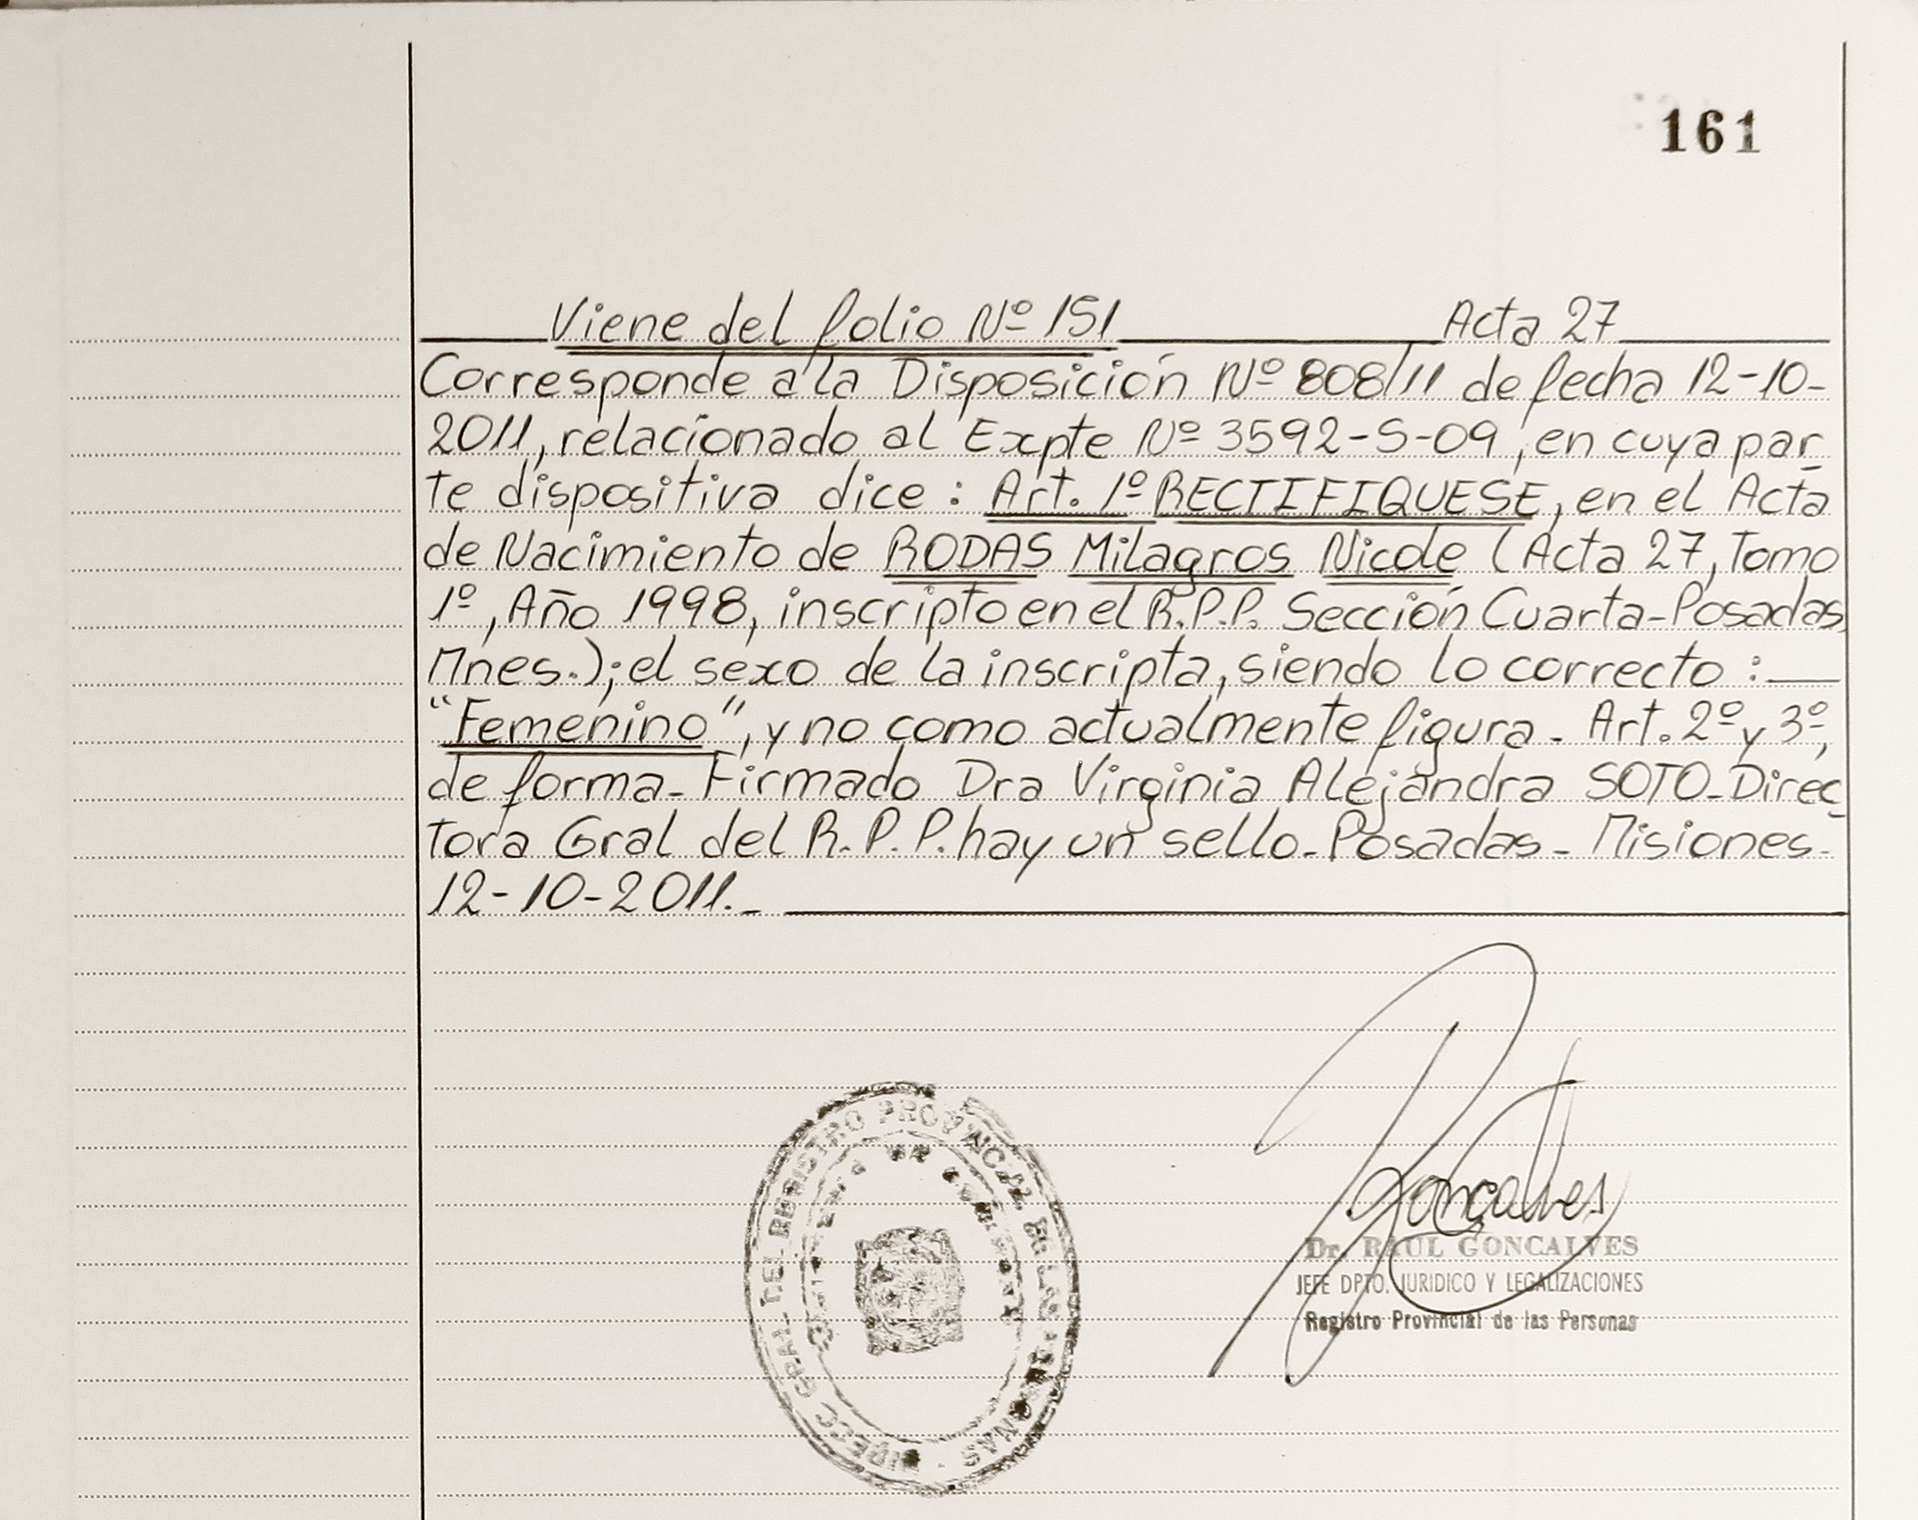 161
Viene del folio Nº 151 Acta 27
Corresponde a la Disposición Nº 808/11 de fecha 12-10-
2011, relacionado al Expte Nº 3592-S-09, en cuya par
te dispositiva dice: Art. 1º RECTIFIQUESE, en el Acta
de Nacimiento de RODAS Milagros Nicole (Acta 27, Tomo
1º, Año 1998, inscripto en el R.P.P. Sección Cuarta-Posadas,
Mnes.); el sexo de la inscripta, siendo lo correcto:
"Femenino", y no como actualmente figura. Art. 2º y 3º,
de forma- Firmado Dra Virginia Alejandra SOTO-Direc
tora Gral del R.P.P. hay un sello-Posadas-Misiones-
12-10-2011.-
DIRECC. GRAL. DEL REGISTRO PROVINCIAL DE LAS PERSONAS
Gonçalves
Dr. RAUL GONCALVES
JEFE DPTO. JURIDICO Y LEGALIZACIONES
Registro Provincial de las Personas